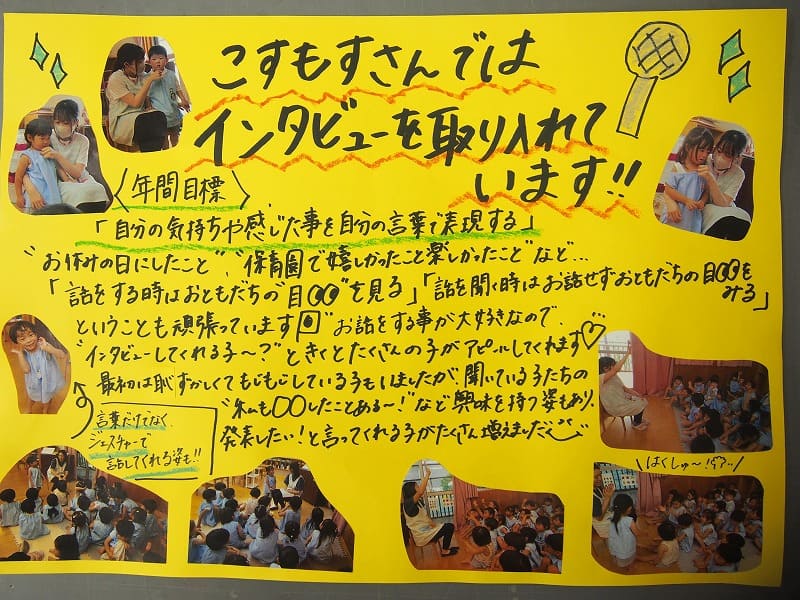 こすもすさんでは
インタビューを取り入れて
います!!
〈年間目標〉
「自分の気持ちや感じた事を自分の言葉で表現する」
"お休みの日にしたこと"、"保育園で嬉しかったこと楽しかったこと"など…
「話をする時はおともだちの"目"を見る」「話を聞く時はお話せずおともだちの目を
みる」
ということも頑張っています
お話をする事が大好きなので、
"インタビューしてくれる子〜?"ときくとたくさんの子がアピールしてくれます♡
最初は恥ずかしくてもじもじしている子もいましたが、聞いている子たちの
"私も〇〇したことある〜!"など興味を持つ姿もあり、
発表したい!と言ってくれる子がたくさん増えました
言葉だけでなく、
ジェスチャーで
話してくれる姿も!!
\はくしゅ〜!!